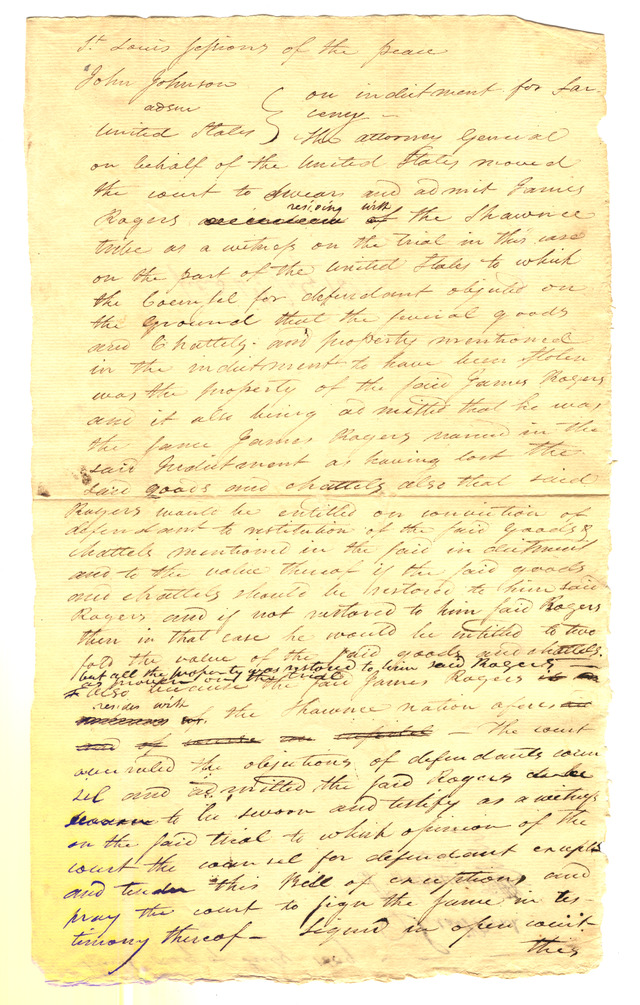 St Louis sessions of the peace
John Johnson
adsm
United States
on indictment for Lar-
ceny —
The attorney General
on behalf of the United States moved
the court to swear and admit James
residing with
Rogers of the Shawnee
tribe as a witness on the trial in this case
on the part of the United States to which
the Counsel for defendant objected on
the Ground that the several goods
and Chattels and property mentioned
in the indictment to have been stolen
was the property of the said James Rogers
and it also being admitted that he was
the same James Rogers named in the
said Indictment as having lost the
said goods and chattels also that said
Rogers would be entitled on conviction of
defendant to restitution of the said Goods &
chattels mentioned in the said indictment
and to the value thereof if the said goods
and chattels should be restored to him said
Rogers and if not restored to him said Rogers
then in that case he would be entitled to two
fold the value of the said goods and chattels.
but all the property was restored to him said Rogers —
as proven on the trial
& also because the said James Rogers
resides with
of the Shawnee nation
and of course an infidel — The court
overruled the objections of defendants coun
sel and admitted the said Rogers
to be sworn and testify as a witness
on the said trial to which opinion of the
court the counsel for defendant excepts
and tender this Bill of exceptions and
pray the court to sign the same in tes-
timony thereof — Signed in open court
this